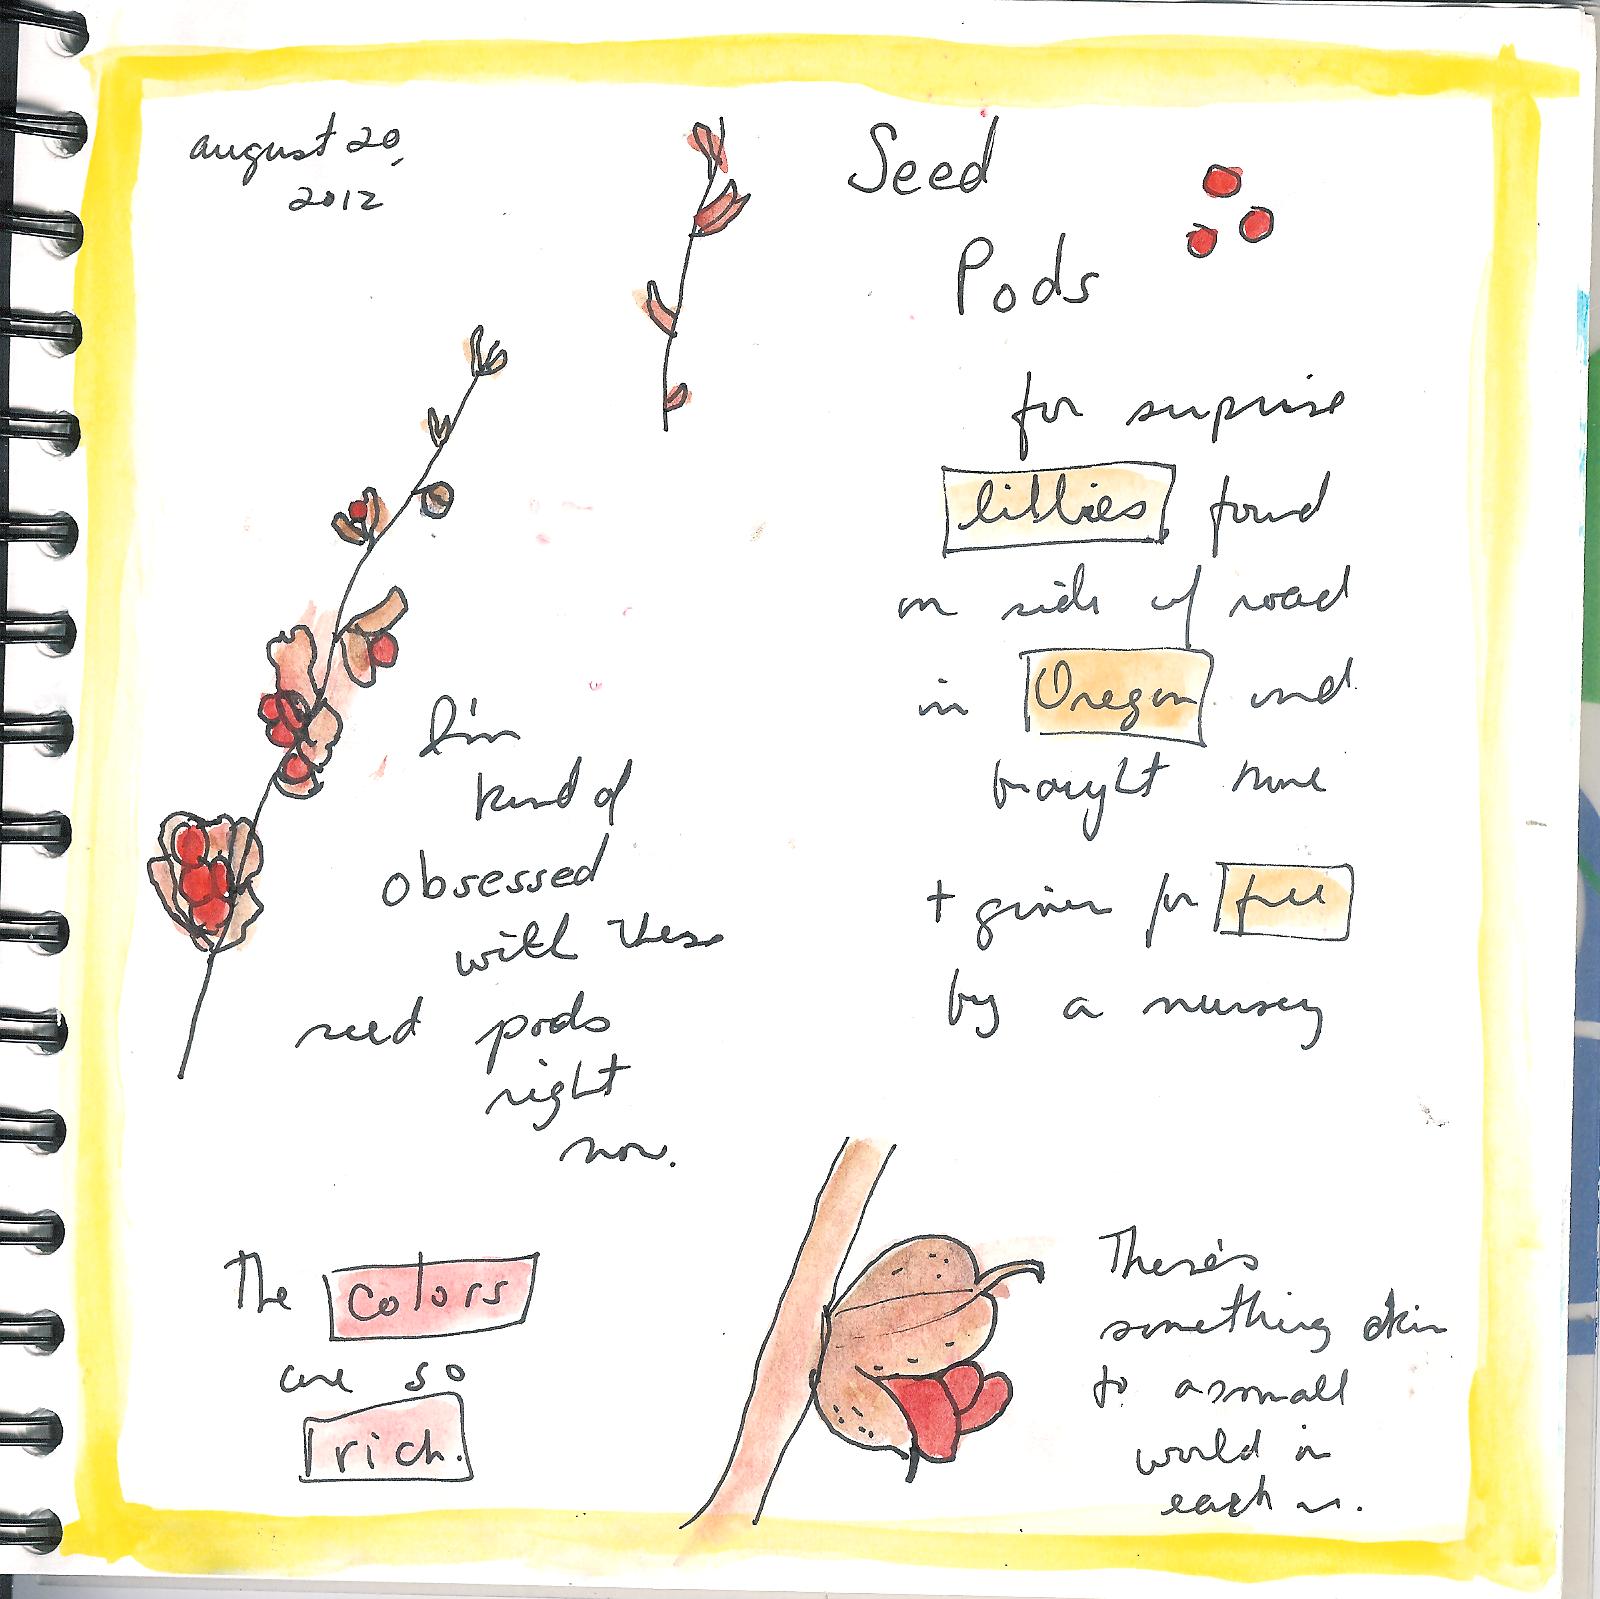 august 20,
2012
Seed
Pods
for surprise
lillies found
on side of road
in Oregon and
brought home
+ given for free
by a nursey
I'm
kind of
obsessed
with these
seed pods
right
now.
The colors
are so
rich.
There's
something akin
to a small
world in
each